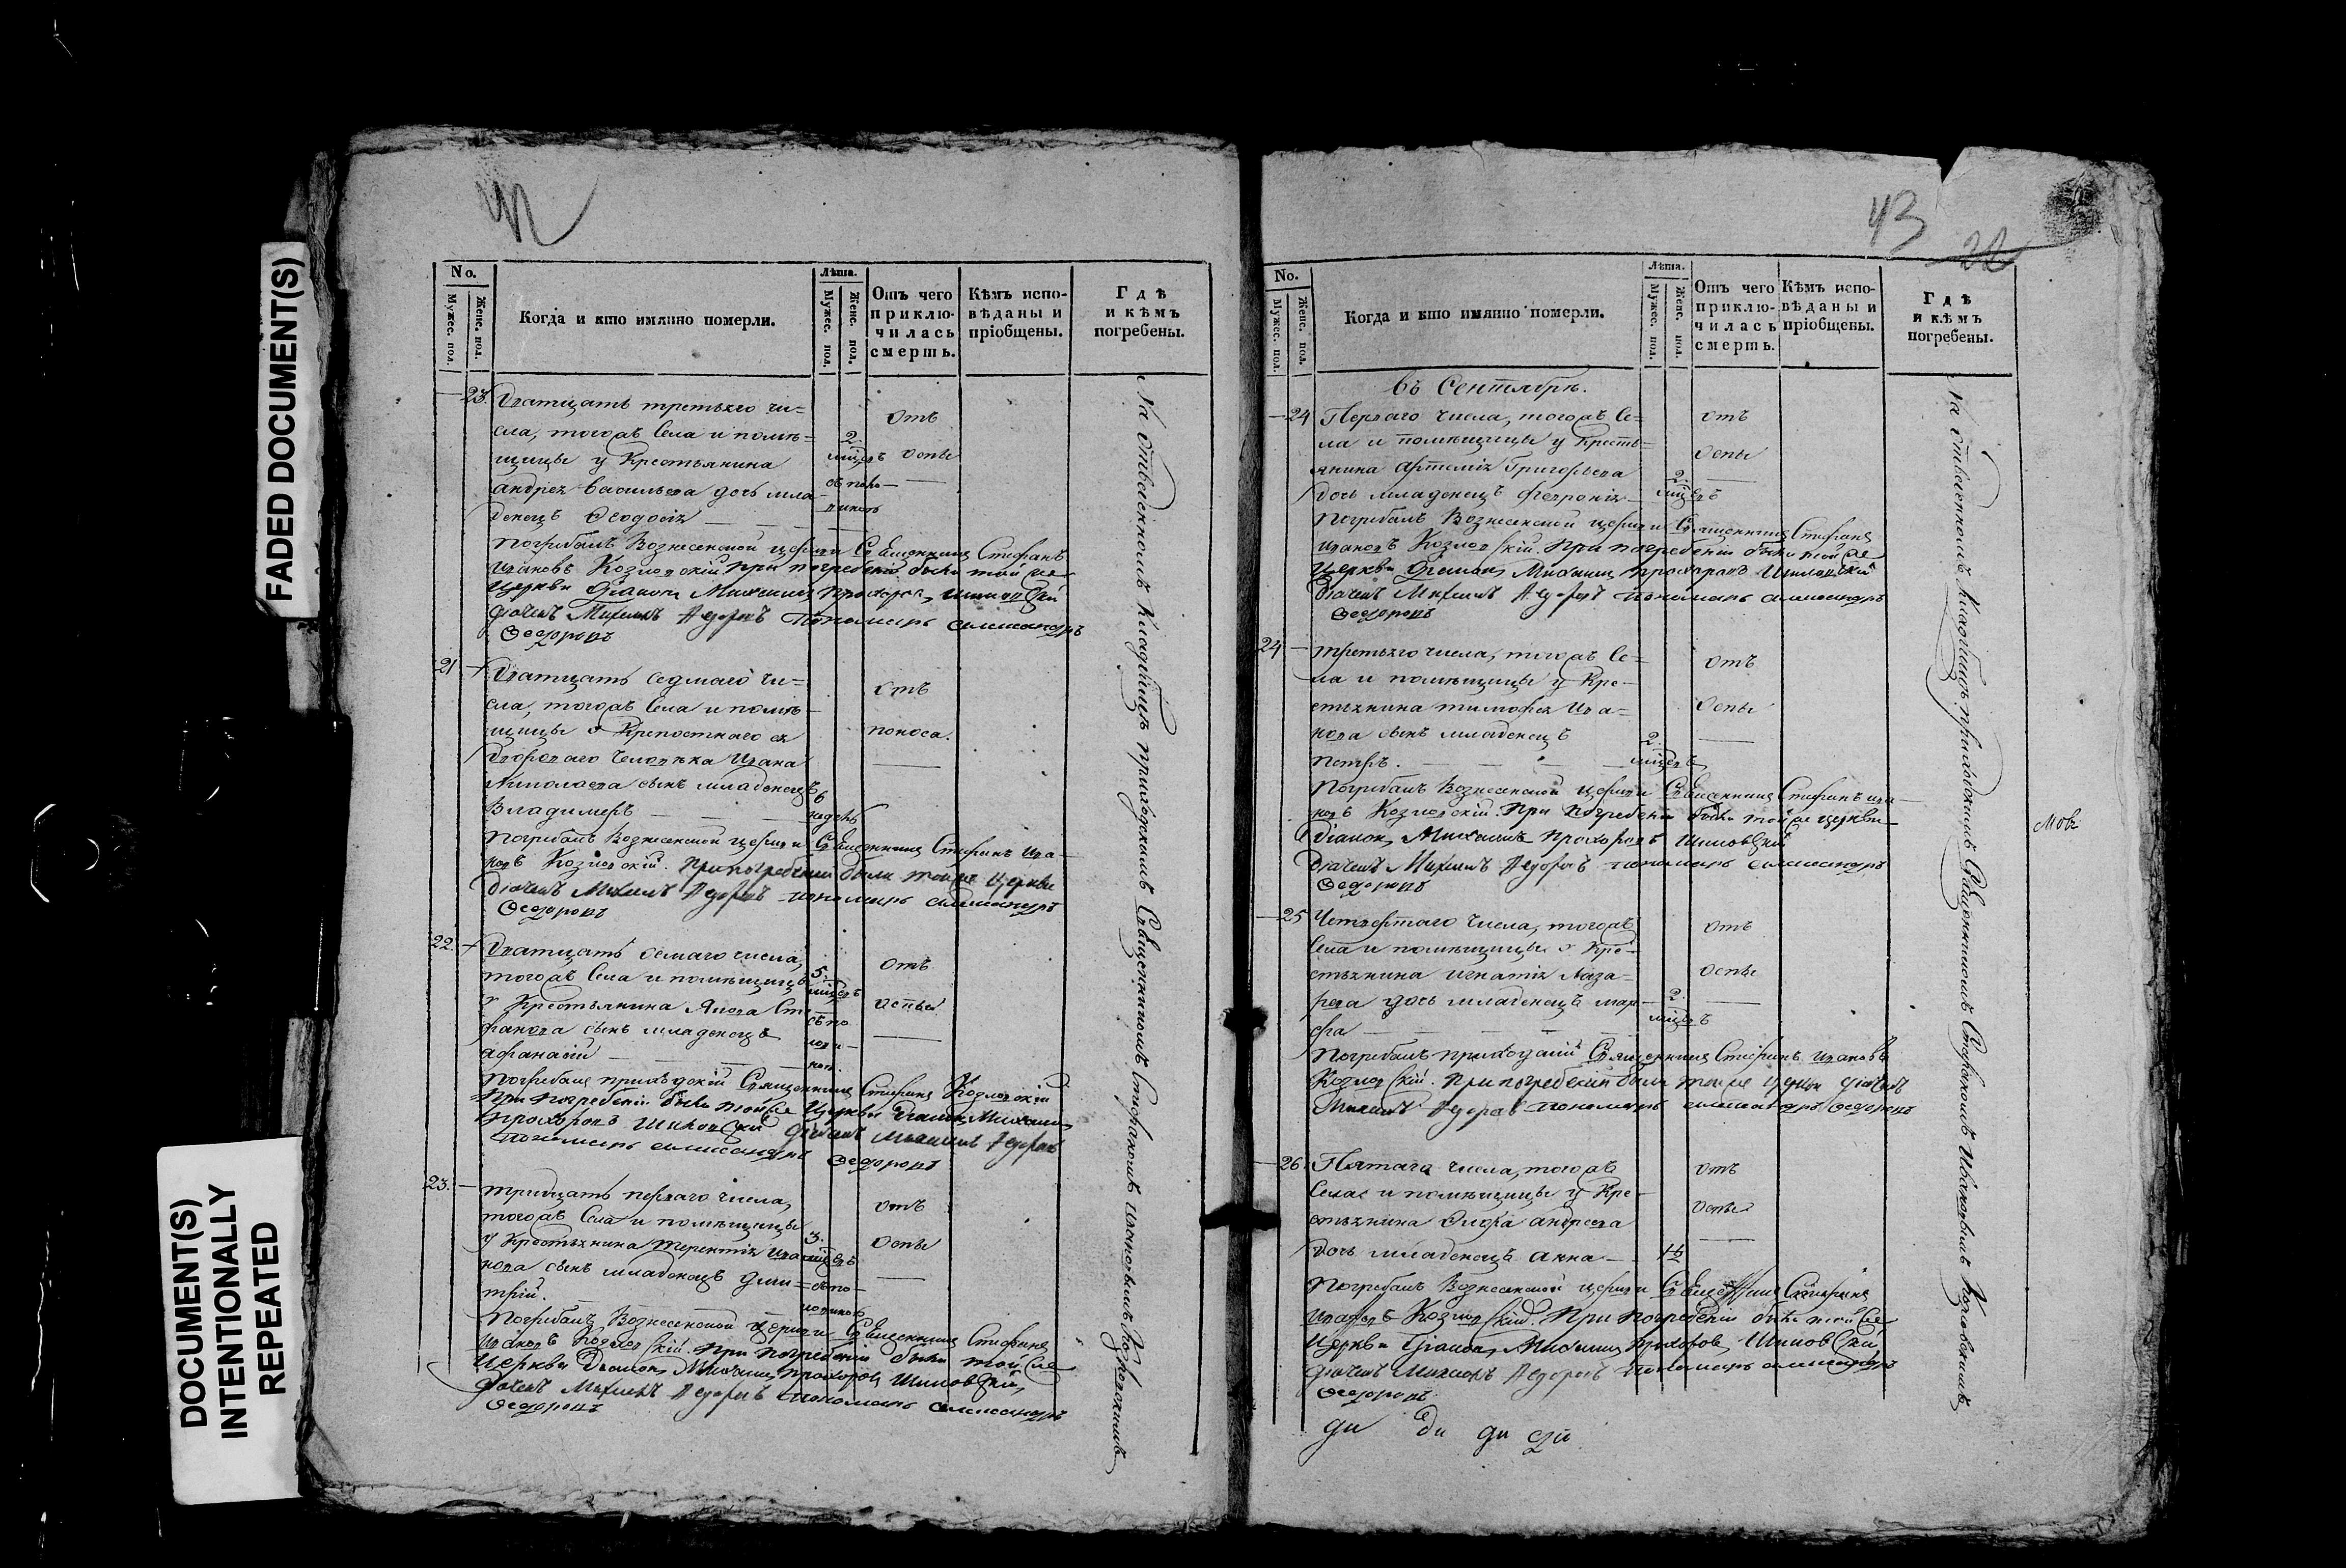 FADED DOCUMENT(S)
DOCUMENT(S)
INTENTIONALLY
REPEATED
42
No.
Мужес. пол.
Женс. пол.
Когда и кто имянно померли.
Лѣта.
Мужес. пол.
Женс. пол.
Отъ чего
приклю-
чилась
смерть.
Кѣмъ испо-
вѣданы и
пріобщены.
Гдѣ
и кѣмъ
погребены.
23. Дватцать третьяго чи=
сла, тогожъ села и помѣ=
щицы у крестьянина
андрея васильева дочь мла-
денецъ Феодосія
2.
мѣцовъ
съ поло-
виною
отъ
оспы
Погребалъ Вознесенской церкви Священникъ Стефанъ
Ивановъ Козловскій. При погребеніи были той же
Церкви Діаконъ Михаилъ Прохоровъ Шиловскій
Дьячекъ Михаилъ Федоровъ пономарь александръ
Федоровъ
21 Дватцать седмаго чи=
сла, тогожъ села и помѣ-
щицы у крепостнаго ея
двороваго человѣка Ивана
Николаева сынъ младенецъ
Владимеръ
6
недель
отъ
поноса.
Погребалъ Вознесенской церкви Священникъ Стефанъ Ива-
новъ Козловскій. При погребеніи были тойже Церкви
Дьячекъ Михаилъ Федоровъ пономарь александръ
Федоровъ
22. Дватцать осмаго числа,
тогожъ села и помѣщицы
у крестьянина Якова Сте-
фанова сынъ младенецъ
афанасій
5.
мѣцовъ
съ по-
лови-
ною.
отъ
оспы
Погребалъ приходскій Священникъ Стефанъ Козловскій
При погребеніи были той же Церкви Діаконъ Михаилъ
Прохоровъ Шиловскій Дьячекъ Михаилъ Федоровъ
пономарь александръ Федоровъ
23. тридцать перваго числа,
тогожъ села и помѣщицы
у крестьянина терентія Ива-
нова сынъ младенецъ дми=
трій.
3.
мѣцовъ
съ по-
ловиною
отъ
оспы
Погребалъ Вознесенской церкви Священникъ Стефанъ
Ивановъ Козловскій. При погребеніи были той же
Церкви Діаконъ Михаилъ Прохоровъ Шиловскій
Дьячекъ Михаилъ Федоровъ пономарь александръ
Федоровъ
На отведенномъ кладбищѣ приходскимъ Священникомъ Стефаномъ Ивановымъ Козловскимъ
43
22
No.
Мужес. пол.
Женс. пол.
Когда и кто имянно померли.
Лѣта.
Мужес. пол.
Женс. пол.
Отъ чего
приклю-
чилась
смерть.
Кѣмъ испо-
вѣданы и
пріобщены.
Гдѣ
и кѣмъ
погребены.
въ Сентябрѣ.
24 Перваго числа, тогожъ се=
ла и помѣщицы у кресть=
янина артемія Григорьева
дочь младенецъ Февронія
2.
мѣцовъ
отъ
оспы
Погребалъ Вознесенской церкви Священникъ Стефанъ
Ивановъ Козловскій. При погребеніи были той же
Церкви Діаконъ Михаилъ Прохоровъ Шиловскій
Дьячекъ Михаилъ Федоровъ пономарь александръ
Федоровъ
24 третьяго числа, тогожъ се=
ла и помѣщицы у кре-
стьянина тимофея Ива=
нова сынъ младенецъ
Петръ.
2.
мѣцовъ
отъ
оспы
Погребалъ Вознесенской церкви Священникъ Стефанъ Ива-
новъ Козловскій. При погребеніи были той же церкви
Діаконъ Михаилъ Прохоровъ Шиловскій
Дьячекъ Михаилъ Федоровъ пономарь александръ
Федоровъ
25 Четвертаго числа, тогожъ
села и помѣщицы у кре-
стьянина игнатія Лаза-
рева дочь младенецъ мар-
фа
2.
мѣцовъ
отъ
оспы
Погребалъ приходскій Священникъ Стефанъ Ивановъ
Козловскій. При погребеніи были тойже церкви Дьячекъ
Михаилъ Федоровъ пономарь александръ Федоровъ
26. Пятаго числа, тогожъ
села и помѣщицы у кре-
стьянина Флора андреева
дочь младенецъ анна
отъ
оспы
Погребалъ Вознесенской церкви Священникъ Стефанъ
Ивановъ Козловскій. При погребеніи были той же
Церкви Діаконъ Михаилъ Прохоровъ Шиловскій
Дьячекъ Михаилъ Федоровъ пономарь александръ
Федоровъ.
ди ди ди
На отведенномъ кладбищѣ приходскимъ Священникомъ Стефаномъ Ивановымъ Козловскимъ